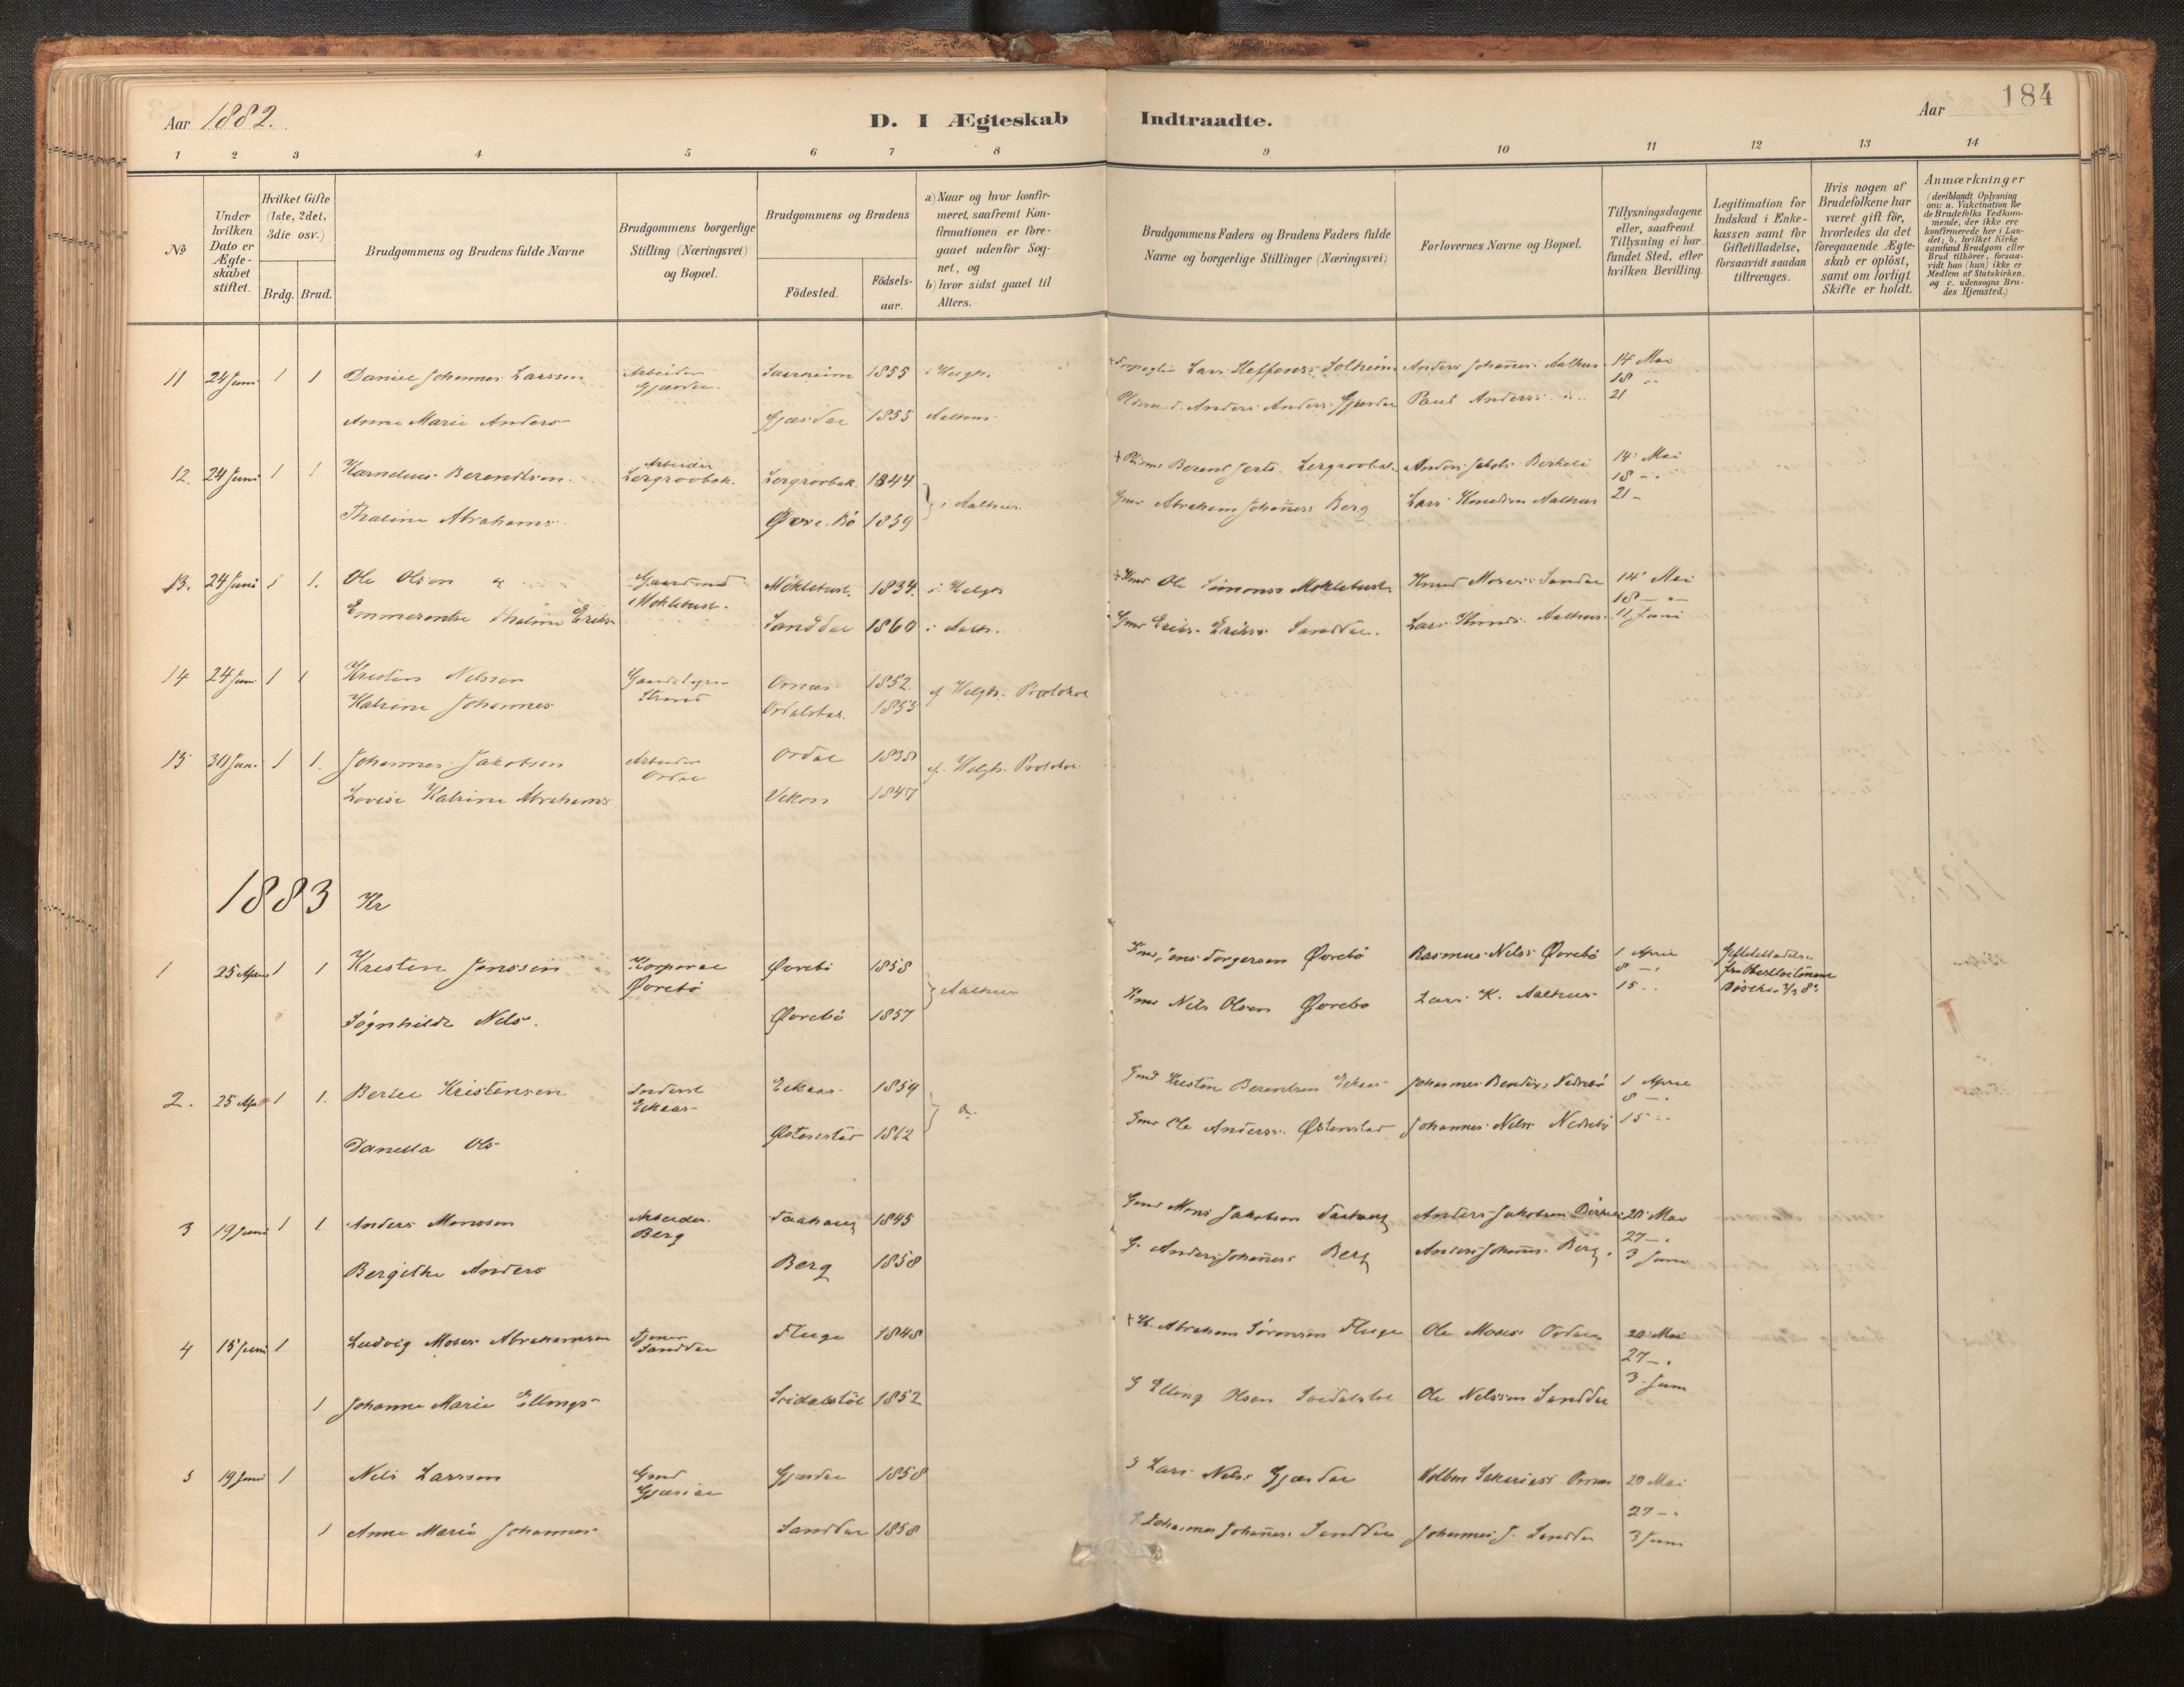 184
Aar 1882.
D. I Ægteskab Indtraadte.
Aar
1 2 3 4 5 6 7 8 9 10 11 12 13 14
No
Under hvilken Dato er Ægteskabet stiftet.
Hvilket Gifte (1ste, 2det, 3die osv.)
Brdg. Brud.
Brudgommens og Brudens fulde Navne
Brudgommens borgerlige Stilling (Næringsvei) og Bopæl.
Brudgommens og Brudens
Födested.
Födsels-aar.
a) Naar og hvor konfirmeret, saafremt Konfirmationen er foregaaet udenfor Sognet, og
b) hvor sidst gaaet til Alters.
Brudgommens Faders og Brudens Faders fulde Navne og borgerlige Stillinger (Næringsvei)
Forlovernes Navne og Bopæl.
Tillysningsdagene eller, saafremt Tillysning ei har fundet Sted, efter hvilken Bevilling.
Legitimation for Indskud i Enkekassen samt for Giftetilladelse, forsaavidt saadan tiltrænges.
Hvis nogen af Brudefolkene har været gift för, hvorledes da det foregaaende Ægteskab er oplöst, samt om lovligt Skifte er holdt.
Anmærkninger
(deriblandt Oplysning om: a. Vakcination for de Brudefolks Vedkommende, der ikke ere konfirmerede her i Landet; b. hvilket Kirkesamfund Brudgom eller Brud tilhörer, forsaavidt han (hun) ikke er Medlem af Statskirken, og c. udensogns Brudes Hjemsted.)
11 24 Juni 1 1 Daniel Johannes Larssen Arbeider Gjæsdal 1855 i Helgh. Lars Steffens. Solheim Anders Johañes. Aalhus 14 Mai
18 "
Anne Marie Anders Gjæsdal 1855 Aalhus Anders Anders. Gjæsdal Paul Anders. 21
12. 24 Juni 1 1 Kornelius Berendtsen Arbeider Lergrovbak. Lergrovbak. 1844 Berent Jerts. Lergrovbak. Anders Jakobs. Birkeli 14 Mai
18 "
Thaline Abrahams. Øvre Bö 1859 i Aalhus. Gmd Abraham Johañess Berg Lars Knudsen Aalhus 21 –
13. 24 Juni 1 1. Ole Olsen Gaardmd Möklebust. Möklebust. 1834. i Helgh + Kmd Ole Simonss Moklebust Knud Moses. Sandal 14 Mai
18 – "
Emmerentse Thaline Eriks. Sanddal 1860 i Aalh. Gmd Eriks. Sanddal. Lars Knuds. Aalhus. 11 Juni
14 24 Juni 1 1 Kristen Nelssen Strand Ornæs 1852. cf Helgh. Protokol
Katrine Johannes Ordalsbak. 1853
15 30 Jun. 1 1. Johannes Jakobsen Arbeider Ordal Ordal 1838 cf. Helgh. Protokol
Lovise Katrine Abrahams 1847
1883 Kr
1 25 April 1 1 Kristen Jenssen Korporal Øvrebö Øvrebö 1858 Aalhus Jens Torgersen Øvrebö Rasmus Nelss Øvrebö 1 April
8 – "
Søgnhilde Nels. Øvrebö 1857 Nels Olsen Øvrebö Lars K. Aalhus 15 "
Giftetilladelse
2. 25 Apr 1 1. Bertel Kristensen Inderst Eikaas Eikaas 1859 Gmd Kristen Berentsen Eikaas Johannes Bendix. Nedrebö 1 April
8 – "
Danella Ols Østenstad 1862 Gmd Ole Anderss. Østenstad Johannes Nelss Nedrebö 15 "
3 19 Juni 1 1. Anders Monssen Arbeider. Berg 1845 Gmd Mons Jakobsen Anders Jakobsen 20 Mai
27 – "
Bergithe Anders Berg 1858 G. Anders Johañess Berg Anders Johañs. Berg. 3 Juni
4 15 Juni 1 Ludvig Moses Abrahamsen Tjener Sanddal Fluge 1848 + H. Abraham Sörensen Fluge Ole Moses. Ordal 20 Mai
27 – .
1 Johanne Marie Ellings Sridalstöl 1852 G Elling Olsen Ole Nelssen Sanddal 3 Juni
5 19 Juni 1 Nels Larssen Gmd Gjæsdal Gjæsdal 1858 G Lars Nels. Gjæsdal 20 Mai
27 – .
1 Anne Marie Johannes Sanddal 1858 G Johannes Johañess Sanddal Johannes J. Sanddal 3 Juni